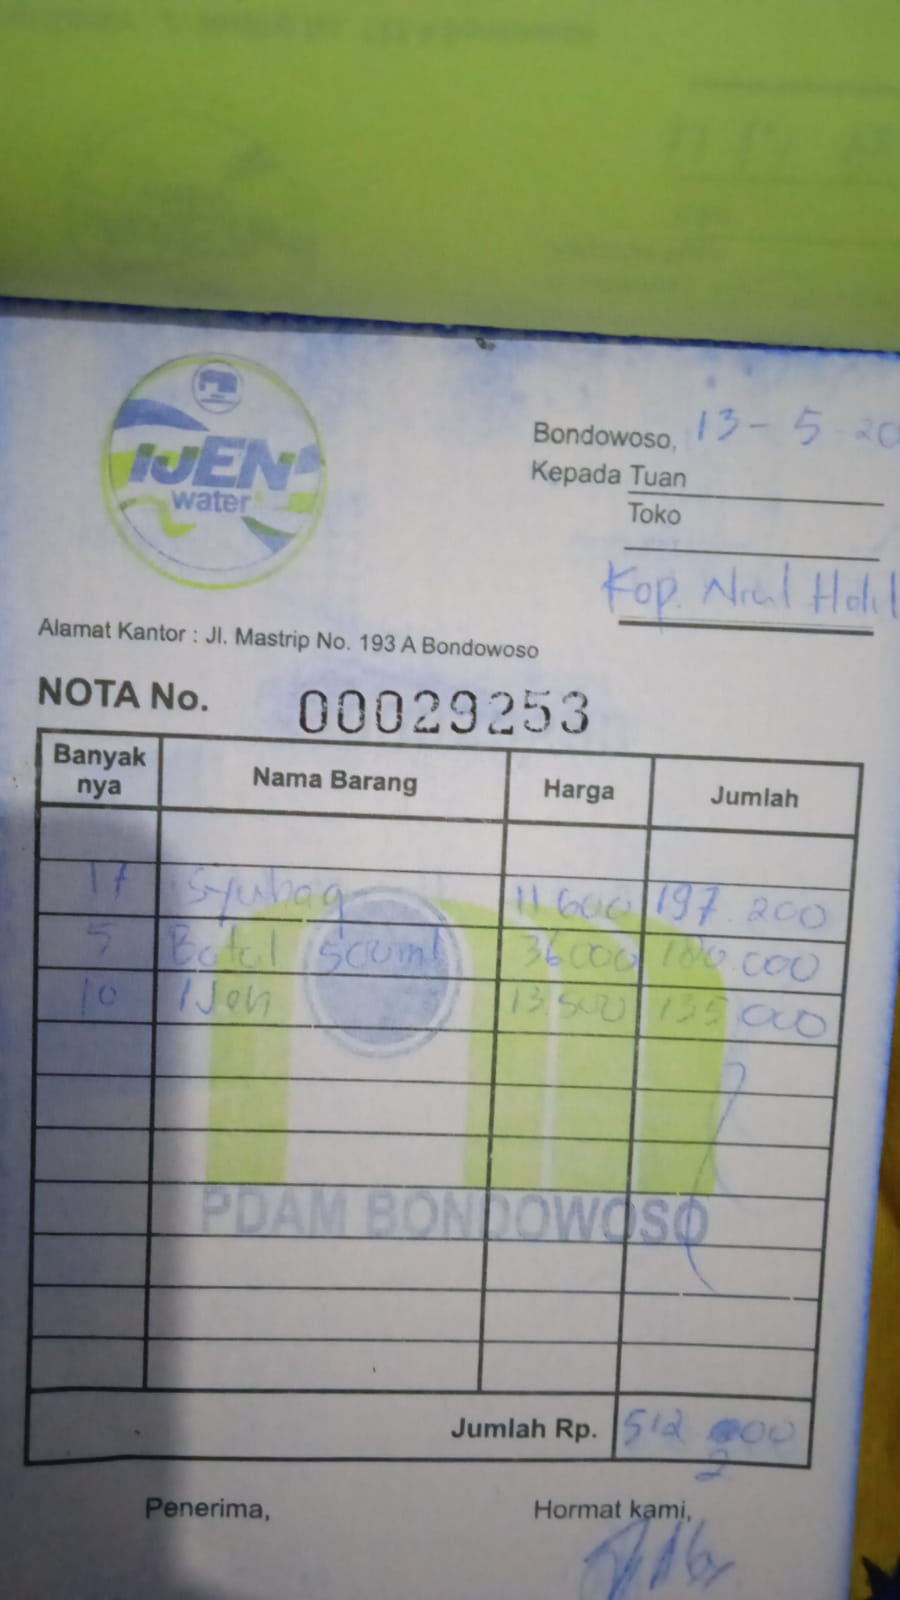 IJEN
water
Bondowoso, 13 - 5 - 20
Kepada Tuan
Toko
Kop. Nurul
Alamat Kantor : Jl. Mastrip No. 193 A Bondowoso
NOTA No. 00029253
Banyak nya Nama Barang Harga Jumlah
17 Syubag 11 600 197.200
5 Botol 500ml 36000 180.000
10 IJen 13.500 135 000
PDAM BONDOWOSO
Jumlah Rp. 512 200
Penerima, Hormat kami,